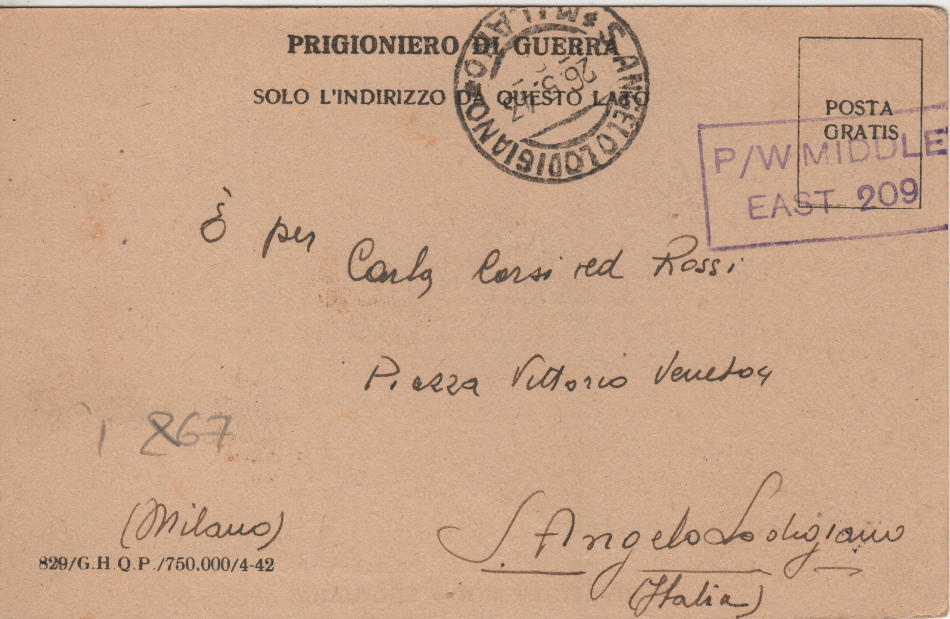 PRIGIONIERO DI GUERRA
SOLO L'INDIRIZZO DA QUESTO LATO
S. ANGELO LODIGIANO * (MILANO) *
26
POSTA
GRATIS
P/W MIDDLE
EAST 209
È per
Carla Corsi ved Rossi
Piazza Vittorio Veneto 4
1 867
(Milano)
S. Angelo Lodigiano
(Italia)
829/G.H.Q.P./750.000/4-42